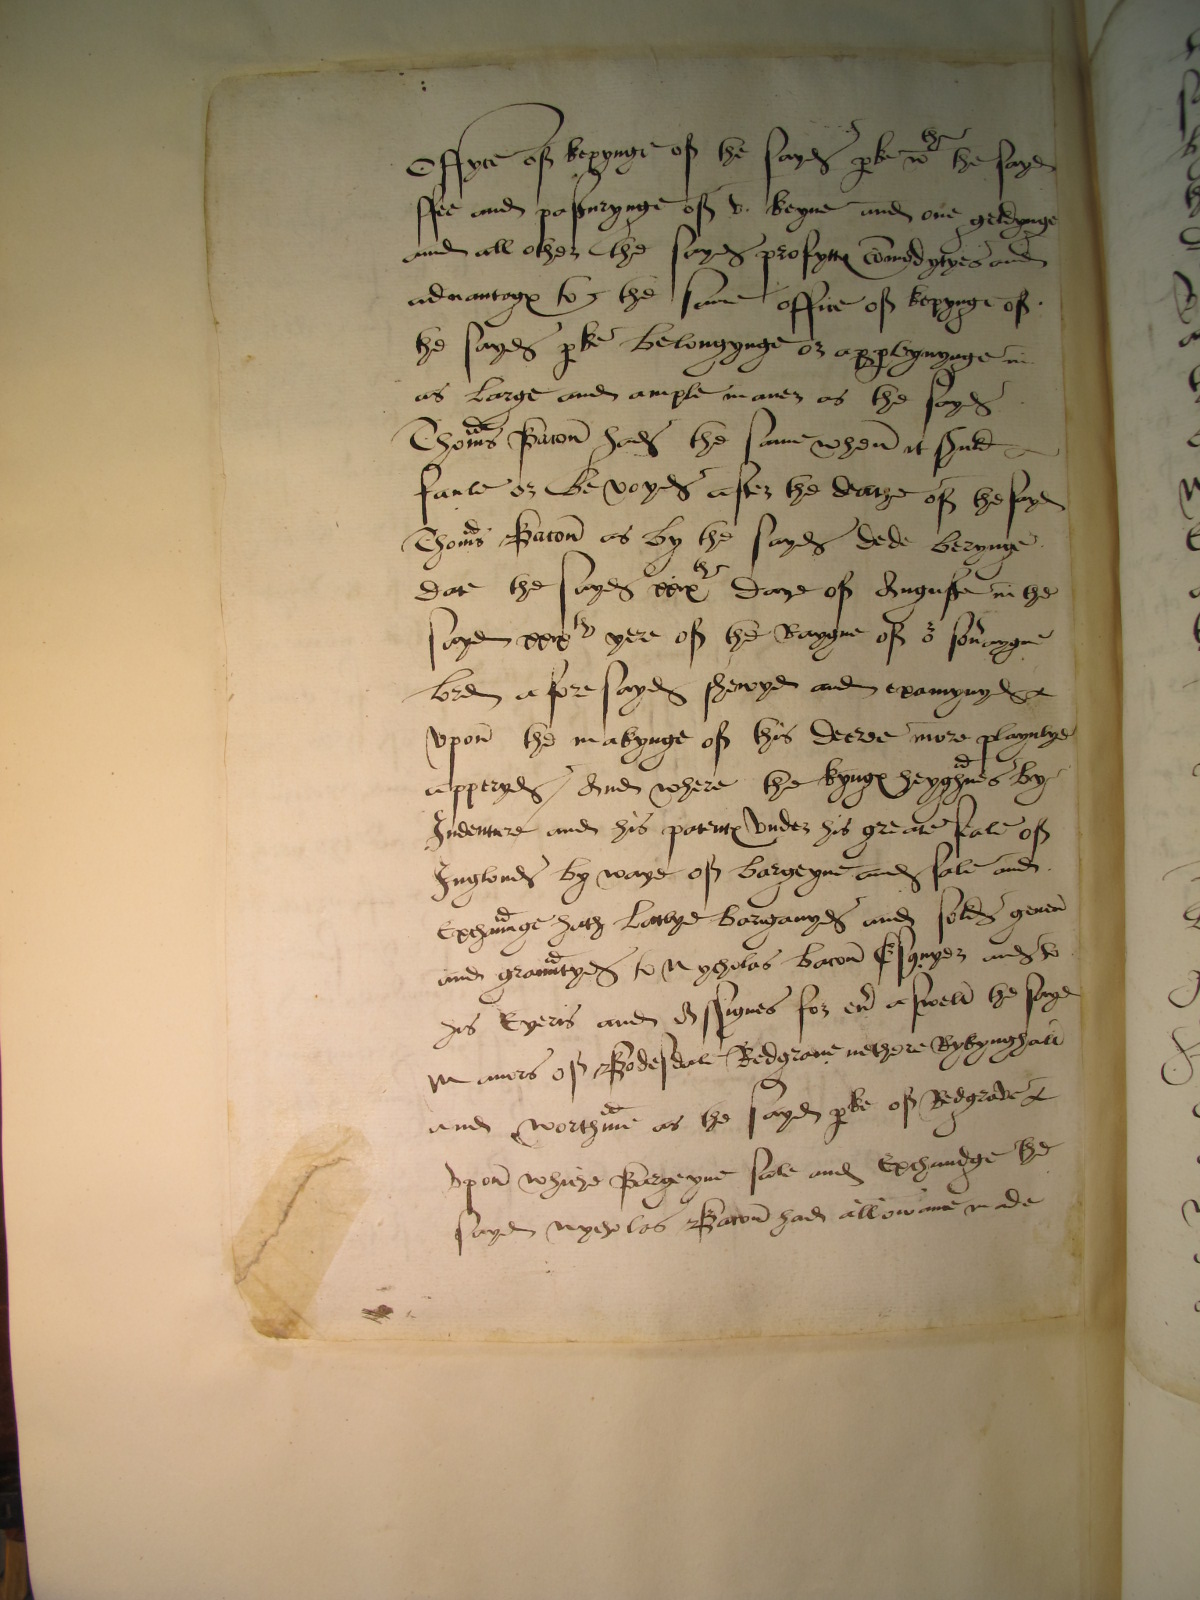 Offyce off kepynge off the sayd pke wth the sayd
ffee and pasturynge off v. keyne and one geldynge
and all other the sayd profytts comodytyes and
advantags to the same office off kepynge off
the sayd pke belongynge or apperteynynge in
as large and ample maner as the sayd
Thoms Bacon had the same when it shuld
faule or be voyd after the deathe off the sayd
Thoms Bacon as by the sayd dede berynge
date the sayd xxixth daye off Auguste in the
sayd xxxth yere off the Raygne off or soveraygne
lord afore sayd shewyd and examynyd
vpon the makynge off this decree more playnlye
apperyd / And where the kyngs heyghnes by
Indenture and his patents vnder his greate seale off
Inglond by waye off bargeyne and sale and
Exchange hath latlye barganyd and sold geven
and grauntyd to Nycholas bacon Esquyer and to
his Eyeris and Assignes for ever aswell the sayd
Manors off Bodesdale Redgrave nethere Rykynghall
and Worthme as the sayd pke off Redgrave
vpon whiche Bargeyne sale and Exchandge the
sayd nycholas Bacon had allowance made